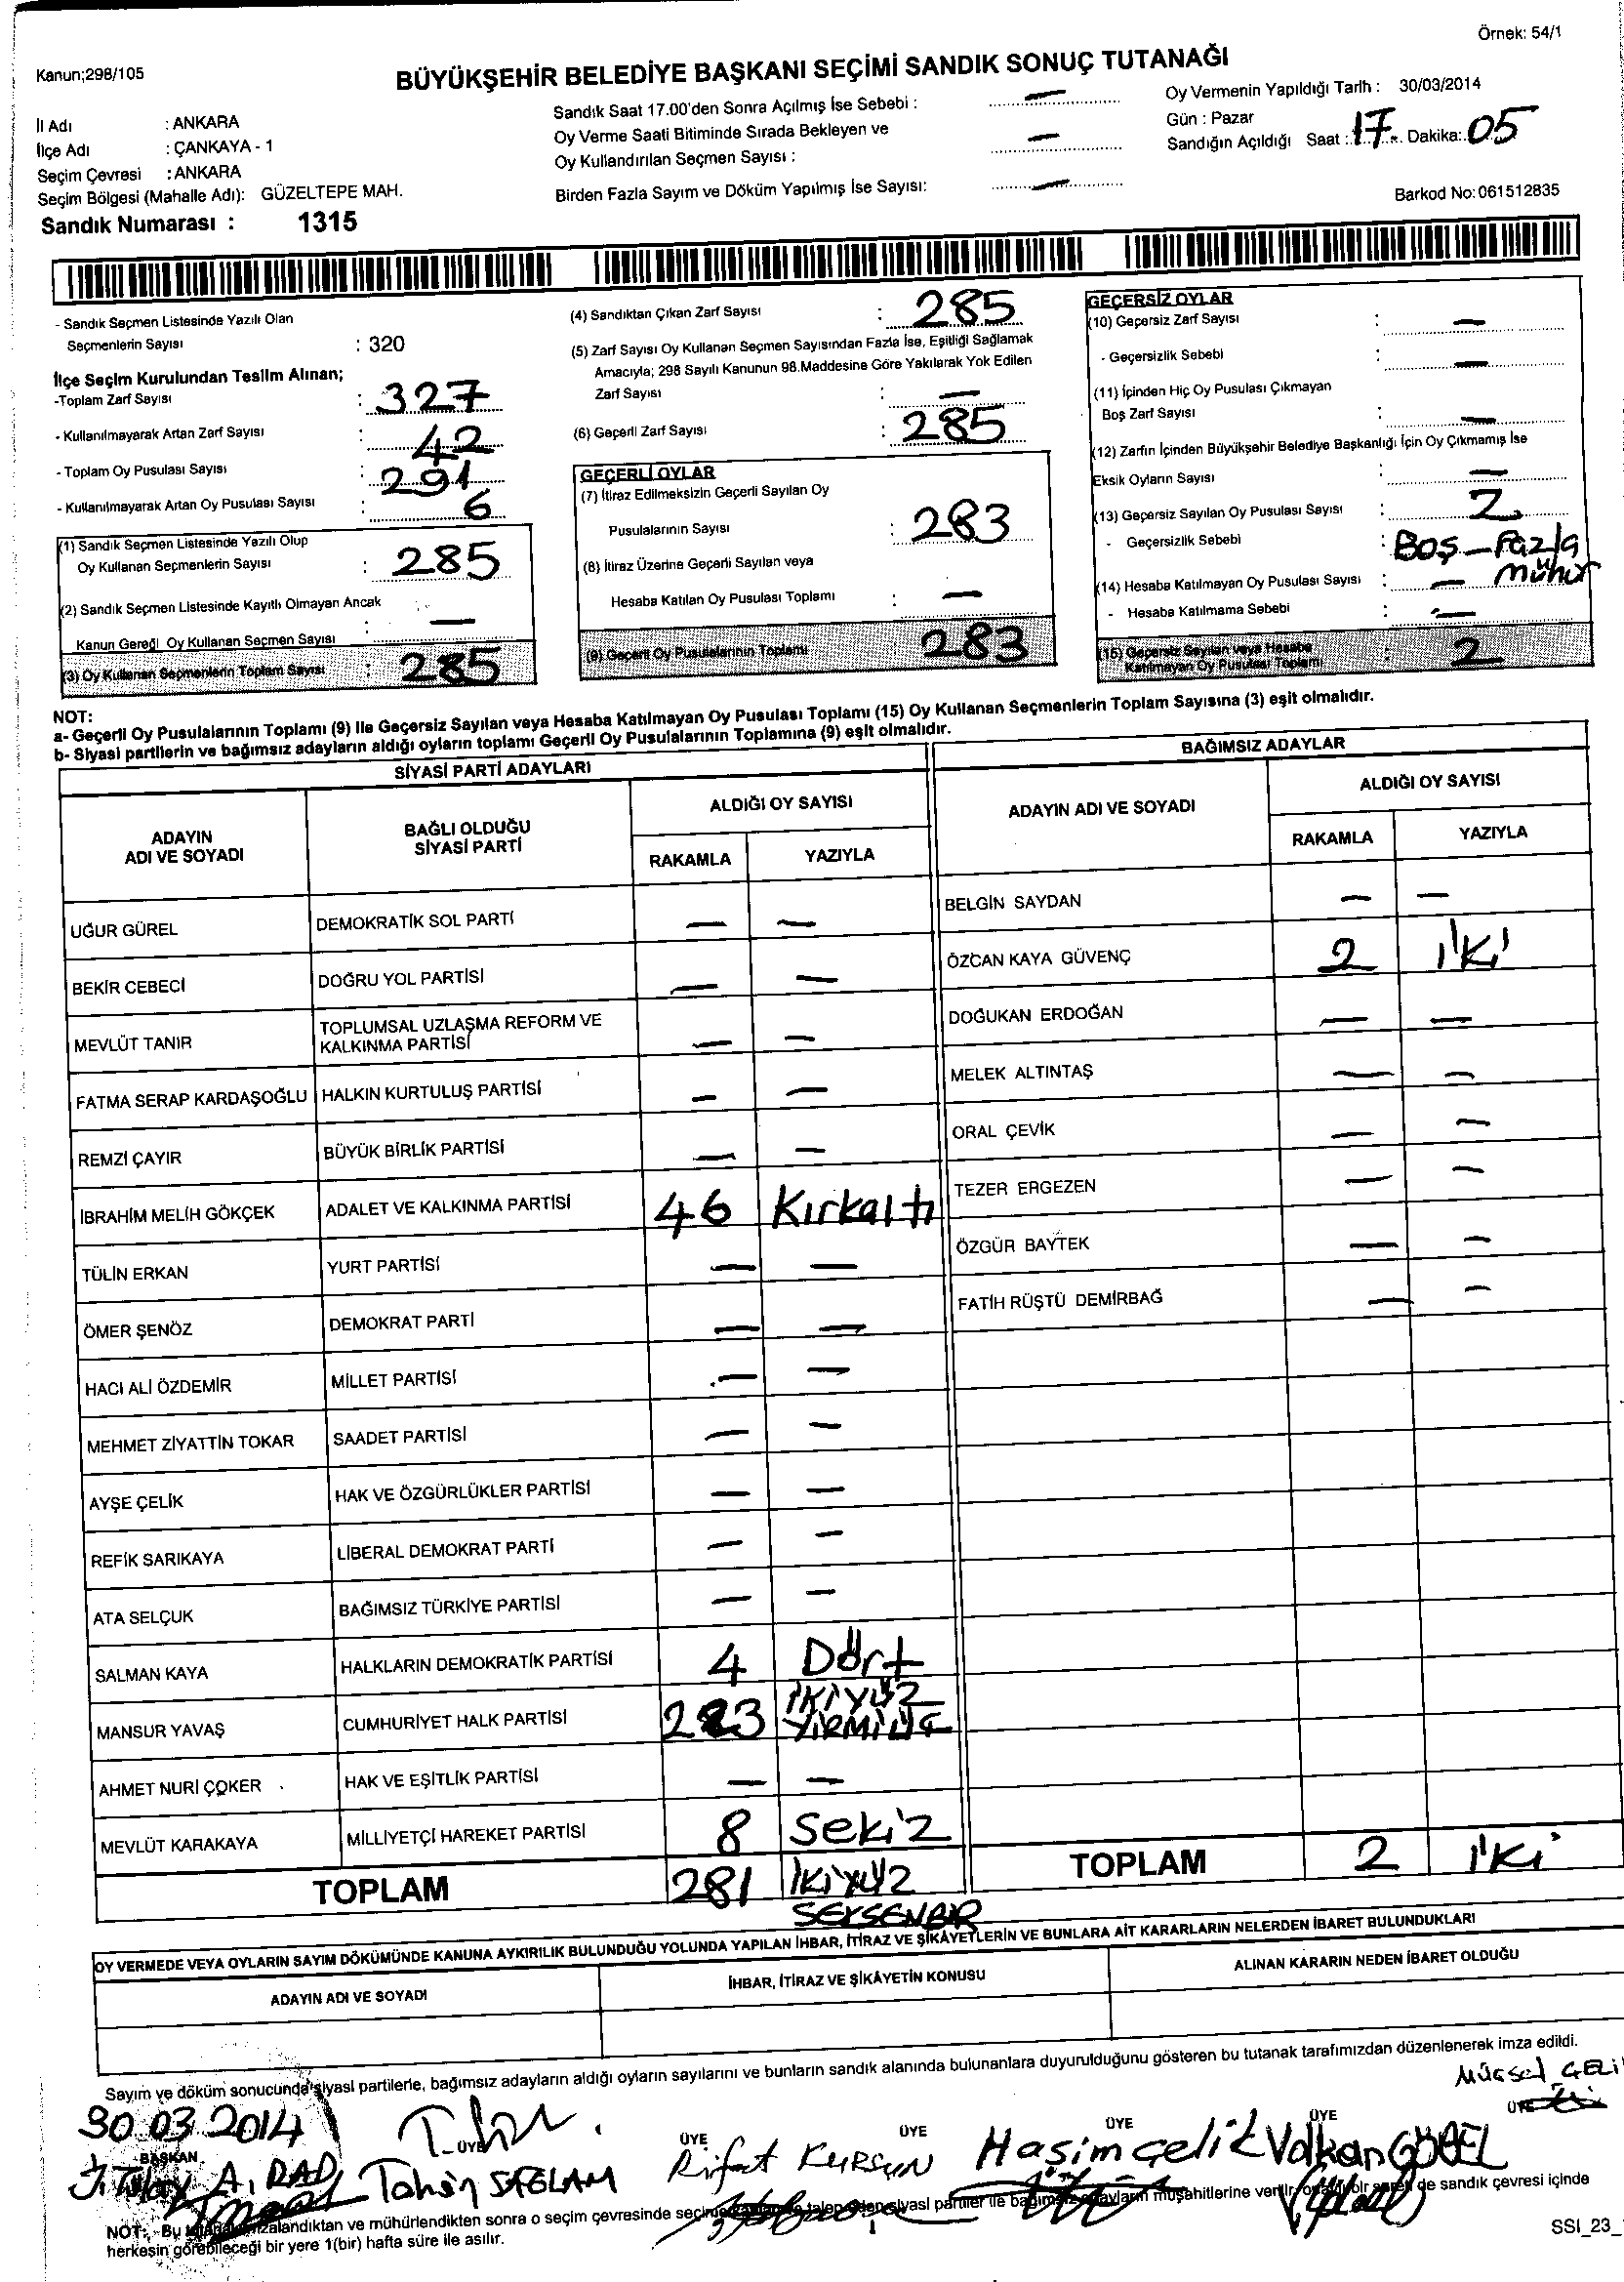 Örnek: 54/1
Kanun;298/105
BÜYÜKŞEHİR BELEDİYE BAŞKANI SEÇİMİ SANDIK SONUÇ TUTANAĞI
İl Adı : ANKARA
İlçe Adı : ÇANKAYA - 1
Seçim Çevresi : ANKARA
Seçim Bölgesi (Mahalle Adı): GÜZELTEPE MAH.
Sandık Numarası : 1315
Sandık Saat 17.00'den Sonra Açılmış İse Sebebi : —
Oy Verme Saati Bitiminde Sırada Bekleyen ve
Oy Kullandırılan Seçmen Sayısı : —
Birden Fazla Sayım ve Döküm Yapılmış İse Sayısı: —
Oy Vermenin Yapıldığı Tarih : 30/03/2014
Gün : Pazar
Sandığın Açıldığı Saat : 17 Dakika: 05
Barkod No: 061512835
- Sandık Seçmen Listesinde Yazılı Olan
Seçmenlerin Sayısı : 320
İlçe Seçim Kurulundan Teslim Alınan;
-Toplam Zarf Sayısı : 327
- Kullanılmayarak Artan Zarf Sayısı : 42
- Toplam Oy Pusulası Sayısı : 291
- Kullanılmayarak Artan Oy Pusulası Sayısı : 6
(1) Sandık Seçmen Listesinde Yazılı Olup
Oy Kullanan Seçmenlerin Sayısı : 285
(2) Sandık Seçmen Listesinde Kayıtlı Olmayan Ancak
Kanun Gereği Oy Kullanan Seçmen Sayısı : —
(3) Oy Kullanan Seçmenlerin Toplam Sayısı : 285
(4) Sandıktan Çıkan Zarf Sayısı : 285
(5) Zarf Sayısı Oy Kullanan Seçmen Sayısından Fazla İse, Eşitliği Sağlamak
Amacıyla; 298 Sayılı Kanunun 98.Maddesine Göre Yakılarak Yok Edilen
Zarf Sayısı : —
(6) Geçerli Zarf Sayısı : 285
GEÇERLİ OYLAR
(7) İtiraz Edilmeksizin Geçerli Sayılan Oy
Pusulalarının Sayısı : 283
(8) İtiraz Üzerine Geçerli Sayılan veya
Hesaba Katılan Oy Pusulası Toplamı : —
(9) Geçerli Oy Pusulalarının Toplamı 283
GEÇERSİZ OYLAR
(10) Geçersiz Zarf Sayısı : —
- Geçersizlik Sebebi : —
(11) İçinden Hiç Oy Pusulası Çıkmayan
Boş Zarf Sayısı : —
(12) Zarfın İçinden Büyükşehir Belediye Başkanlığı İçin Oy Çıkmamış İse
Eksik Oyların Sayısı : —
(13) Geçersiz Sayılan Oy Pusulası Sayısı : 2
- Geçersizlik Sebebi : Boş — Fazla
mühür
(14) Hesaba Katılmayan Oy Pusulası Sayısı : —
- Hesaba Katılmama Sebebi : —
(15) Geçersiz Sayılan veya Hesaba
Katılmayan Oy Pusulası Toplamı : 2
NOT:
a- Geçerli Oy Pusulalarının Toplamı (9) ile Geçersiz Sayılan veya Hesaba Katılmayan Oy Pusulası Toplamı (15) Oy Kullanan Seçmenlerin Toplam Sayısına (3) eşit olmalıdır.
b- Siyasi partilerin ve bağımsız adayların aldığı oyların toplamı Geçerli Oy Pusulalarının Toplamına (9) eşit olmalıdır.
SİYASİ PARTİ ADAYLARI
ADAYIN
ADI VE SOYADI
BAĞLI OLDUĞU
SİYASİ PARTİ
ALDIĞI OY SAYISI
RAKAMLA YAZIYLA
UĞUR GÜREL DEMOKRATİK SOL PARTİ — —
BEKİR CEBECİ DOĞRU YOL PARTİSİ — —
MEVLÜT TANIR TOPLUMSAL UZLAŞMA REFORM VE
KALKINMA PARTİSİ — —
FATMA SERAP KARDAŞOĞLU HALKIN KURTULUŞ PARTİSİ — —
REMZİ ÇAYIR BÜYÜK BİRLİK PARTİSİ — —
İBRAHİM MELİH GÖKÇEK ADALET VE KALKINMA PARTİSİ 46 Kırkaltı
TÜLİN ERKAN YURT PARTİSİ — —
ÖMER ŞENÖZ DEMOKRAT PARTİ — —
HACI ALİ ÖZDEMİR MİLLET PARTİSİ — —
MEHMET ZİYATTİN TOKAR SAADET PARTİSİ — —
AYŞE ÇELİK HAK VE ÖZGÜRLÜKLER PARTİSİ — —
REFİK SARIKAYA LİBERAL DEMOKRAT PARTİ — —
ATA SELÇUK BAĞIMSIZ TÜRKİYE PARTİSİ — —
SALMAN KAYA HALKLARIN DEMOKRATİK PARTİSİ 4 Dört
MANSUR YAVAŞ CUMHURİYET HALK PARTİSİ 223 İKİYÜZ
YİRMİÜÇ
AHMET NURİ ÇOKER HAK VE EŞİTLİK PARTİSİ — —
MEVLÜT KARAKAYA MİLLİYETÇİ HAREKET PARTİSİ 8 Sekiz
TOPLAM 281 İkiyüz
SEKSENBİR
BAĞIMSIZ ADAYLAR
ADAYIN ADI VE SOYADI
ALDIĞI OY SAYISI
RAKAMLA YAZIYLA
BELGİN SAYDAN — —
ÖZCAN KAYA GÜVENÇ 2 İKİ
DOĞUKAN ERDOĞAN — —
MELEK ALTINTAŞ — —
ORAL ÇEVİK — —
TEZER ERGEZEN — —
ÖZGÜR BAYTEK — —
FATİH RÜŞTÜ DEMİRBAĞ — —
TOPLAM 2 iki
OY VERMEDE VEYA OYLARIN SAYIM DÖKÜMÜNDE KANUNA AYKIRILIK BULUNDUĞU YOLUNDA YAPILAN İHBAR, İTİRAZ VE ŞİKÂYETLERİN VE BUNLARA AİT KARARLARIN NELERDEN İBARET BULUNDUKLARI
ADAYIN ADI VE SOYADI İHBAR, İTİRAZ VE ŞİKÂYETİN KONUSU ALINAN KARARIN NEDEN İBARET OLDUĞU
Sayım ve döküm sonucunda siyasi partilerle, bağımsız adayların aldığı oyların sayılarını ve bunların sandık alanında bulunanlara duyurulduğunu gösteren bu tutanak tarafımızdan düzenlenerek imza edildi.
30.03.2014
BAŞKAN ÜYE ÜYE ÜYE ÜYE ÜYE ÜYE
Tahsin SAĞLAM Rifat KURŞUN Haşim Çelik Volkan GÖBEL
NOT: Bu tutanak imzalandıktan ve mühürlendikten sonra o seçim çevresinde talep eden siyasi partiler ile bağımsız adayların müşahitlerine verilir, de sandık çevresi içinde
herkesin görebileceği bir yere 1(bir) hafta süre ile asılır.
SSI_23_